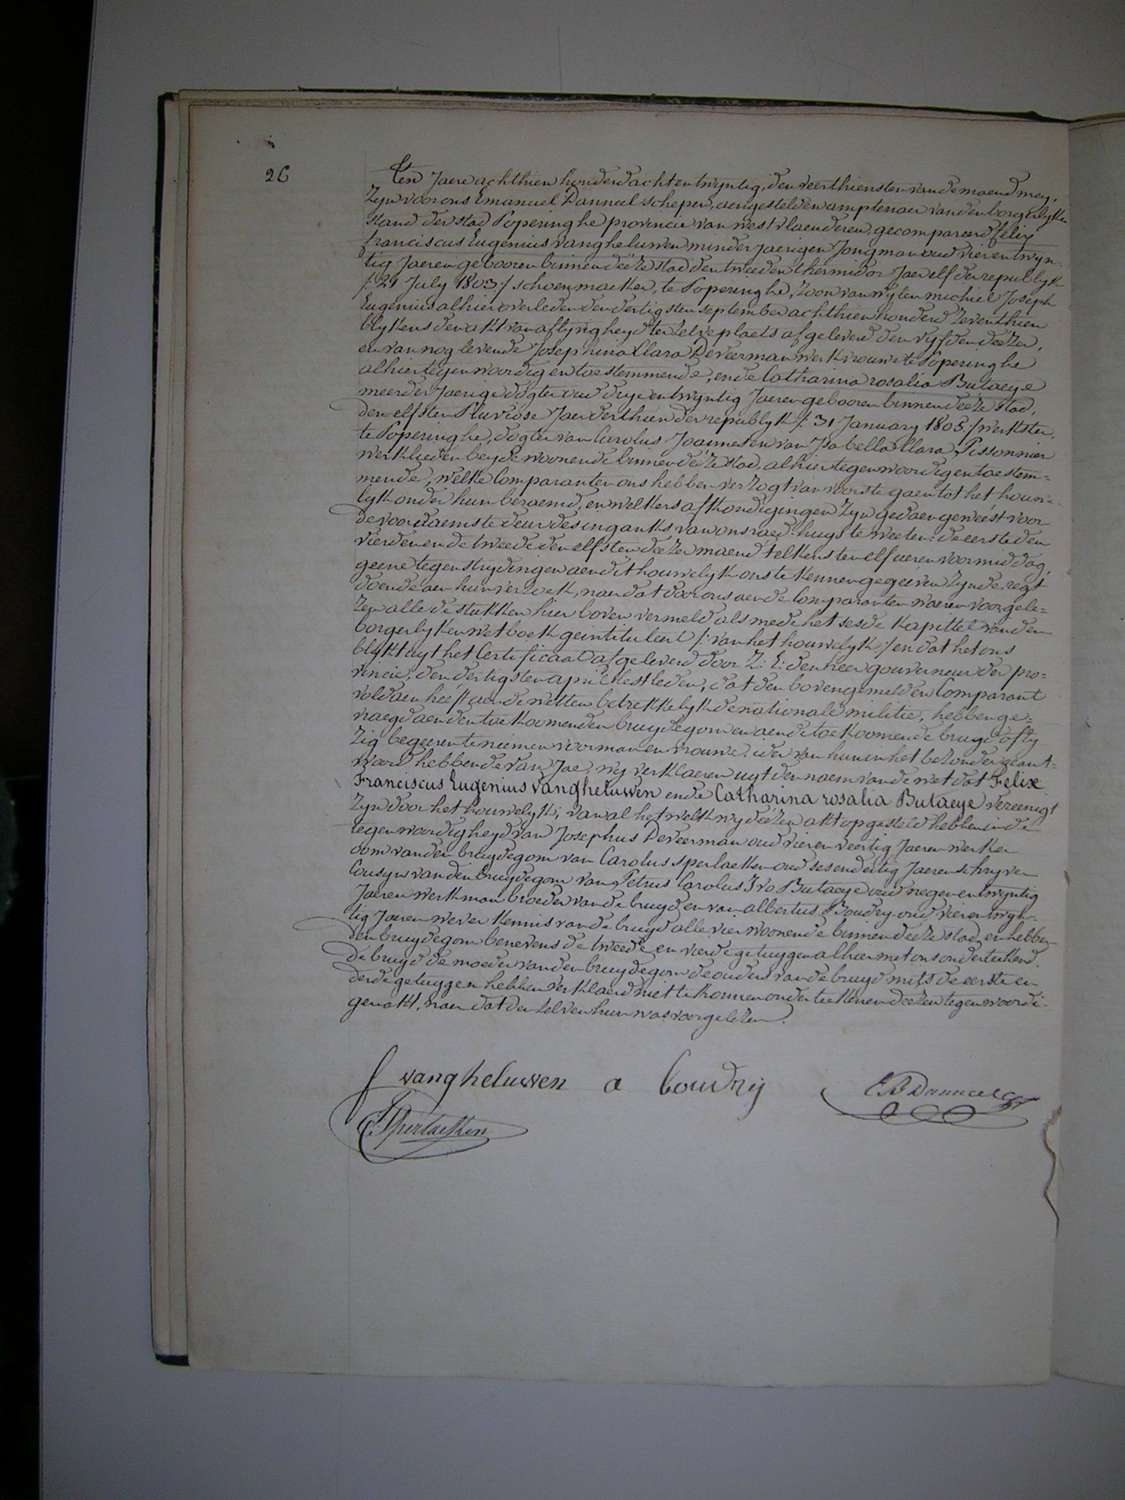 26
Ten Jaere achthien honderd acht en twyntig, den veerthiensten van de maend mey,
Zyn voor ons Emanuel Danneel schepen, aengestelden amptenaer van den borgerlyken
stand der stad Poperinghe provincie van westvlaenderen, gecompareerd felix
franciscus Eugenius vangheluwen minderjaerigen Jongman oud vier en twyn-
tig Jaeren gebooren binnen deéze stad den tweeden thermidor Jaer elf der republyk
/: 21 July 1803 / schoenmaeker, te Poperinghe, zoon van wylen michiel Joseph
Eugenius alhier overleden den dertigsten september achthien honderd zeventhien
blykens den akt van aflyvigheyd ter zelve plaets afgeleverd den vyfden deézer,
en van nog levende Josephina Clara Deveerman werkvrouw te Poperinghe
alhier tegenwoordig en toestemmende, ende Catharina rosalia Butaeye
meerderjaerige dogter oud drye en twyntig Jaeren gebooren binnen deéze stad,
den elfsten Pluviose Jaer derthien der republyk /: 31 January 1805 / werkster,
te Poperinghe, dogter van Carolus Joannes en van Isabella Clara Tissonnier
werklieden beyde woonende binnen deéze stad, alhier tegenwoordig en toestem-
mende, welke Comparanten ons hebben verzogt van voorste gaen tot het houw-
lyk onder hun beraemd, en welkers afkondigingen zyn gedaen geweést voor
de voornaemste deur des ingank's van ons raed-huys te weeten: de eerste den
vierden en de tweede den elfsten deézer maend telkens ten elf ueren voormiddag,
geene tegenstrydingen aen dit houwelyk ons te kennen gegeéven zynde, regt
doende aen hun verzoek, naer dat door ons aen de Comparanten waeren voorgele-
zen alle de stukken hier boven vermeld als mede het sesde kapittel van den
borgerlyken wetboek geintituleert /: van het houwelyk :/ en dat het ons
blykt uyt het Certificaat afgeleverd door Z: E: den heer gouverneur der pro-
vincie, den dertigsten april lestleden, dat den bovengemelden Comparant
voldaen heeft aen de wetten betrekkelyk de nationale militie, hebben ge-
vraegd aen den toekoomenden bruydegom en aen de toekoomende bruyd of zy
zig begeéren te neémen voor man en vrouwe, ider van hun in het bezonder geant-
woord hebbende van Jae; wy verklaeren uyt den naem van de wet dat Felix
Franciscus Eugenius vangheluwen ende Catharina rosalia Butaeye vereenigt
zyn door het houwelyk; van al het welk wy deézen akt opgesteld hebben in de
tegenwoordigheyd van Josephus Deveerman oud vier en veertig Jaeren werker
oom van den bruydegom van Carolus Sperlaeken oud ses en dertig Jaeren schryver
Cousyn van den bruydegom van Petrus Carolus Ivo Butaeye oud negen en twyntig
Jaeren werkman broeder van de bruyd en van Albertus Boudry oud vier en twyn-
tig Jaeren wever kennis van de bruyd alle vier woonende binnen deéze stad, en hebben
den bruydegom benevens de tweede en vierde getuygen alhier met ons onderteekend.
de bruyd de moeder van den bruydegom de ouders van de bruyd mits de eerste en
derde getuygen hebben verklaerd niet te konnen onderteekenen deézen tegenwoordi-
gen akt, naer dat den zelven hun was voorgelézen.
f vangheluwen a boudry E B Danneel
C Sperlaeken